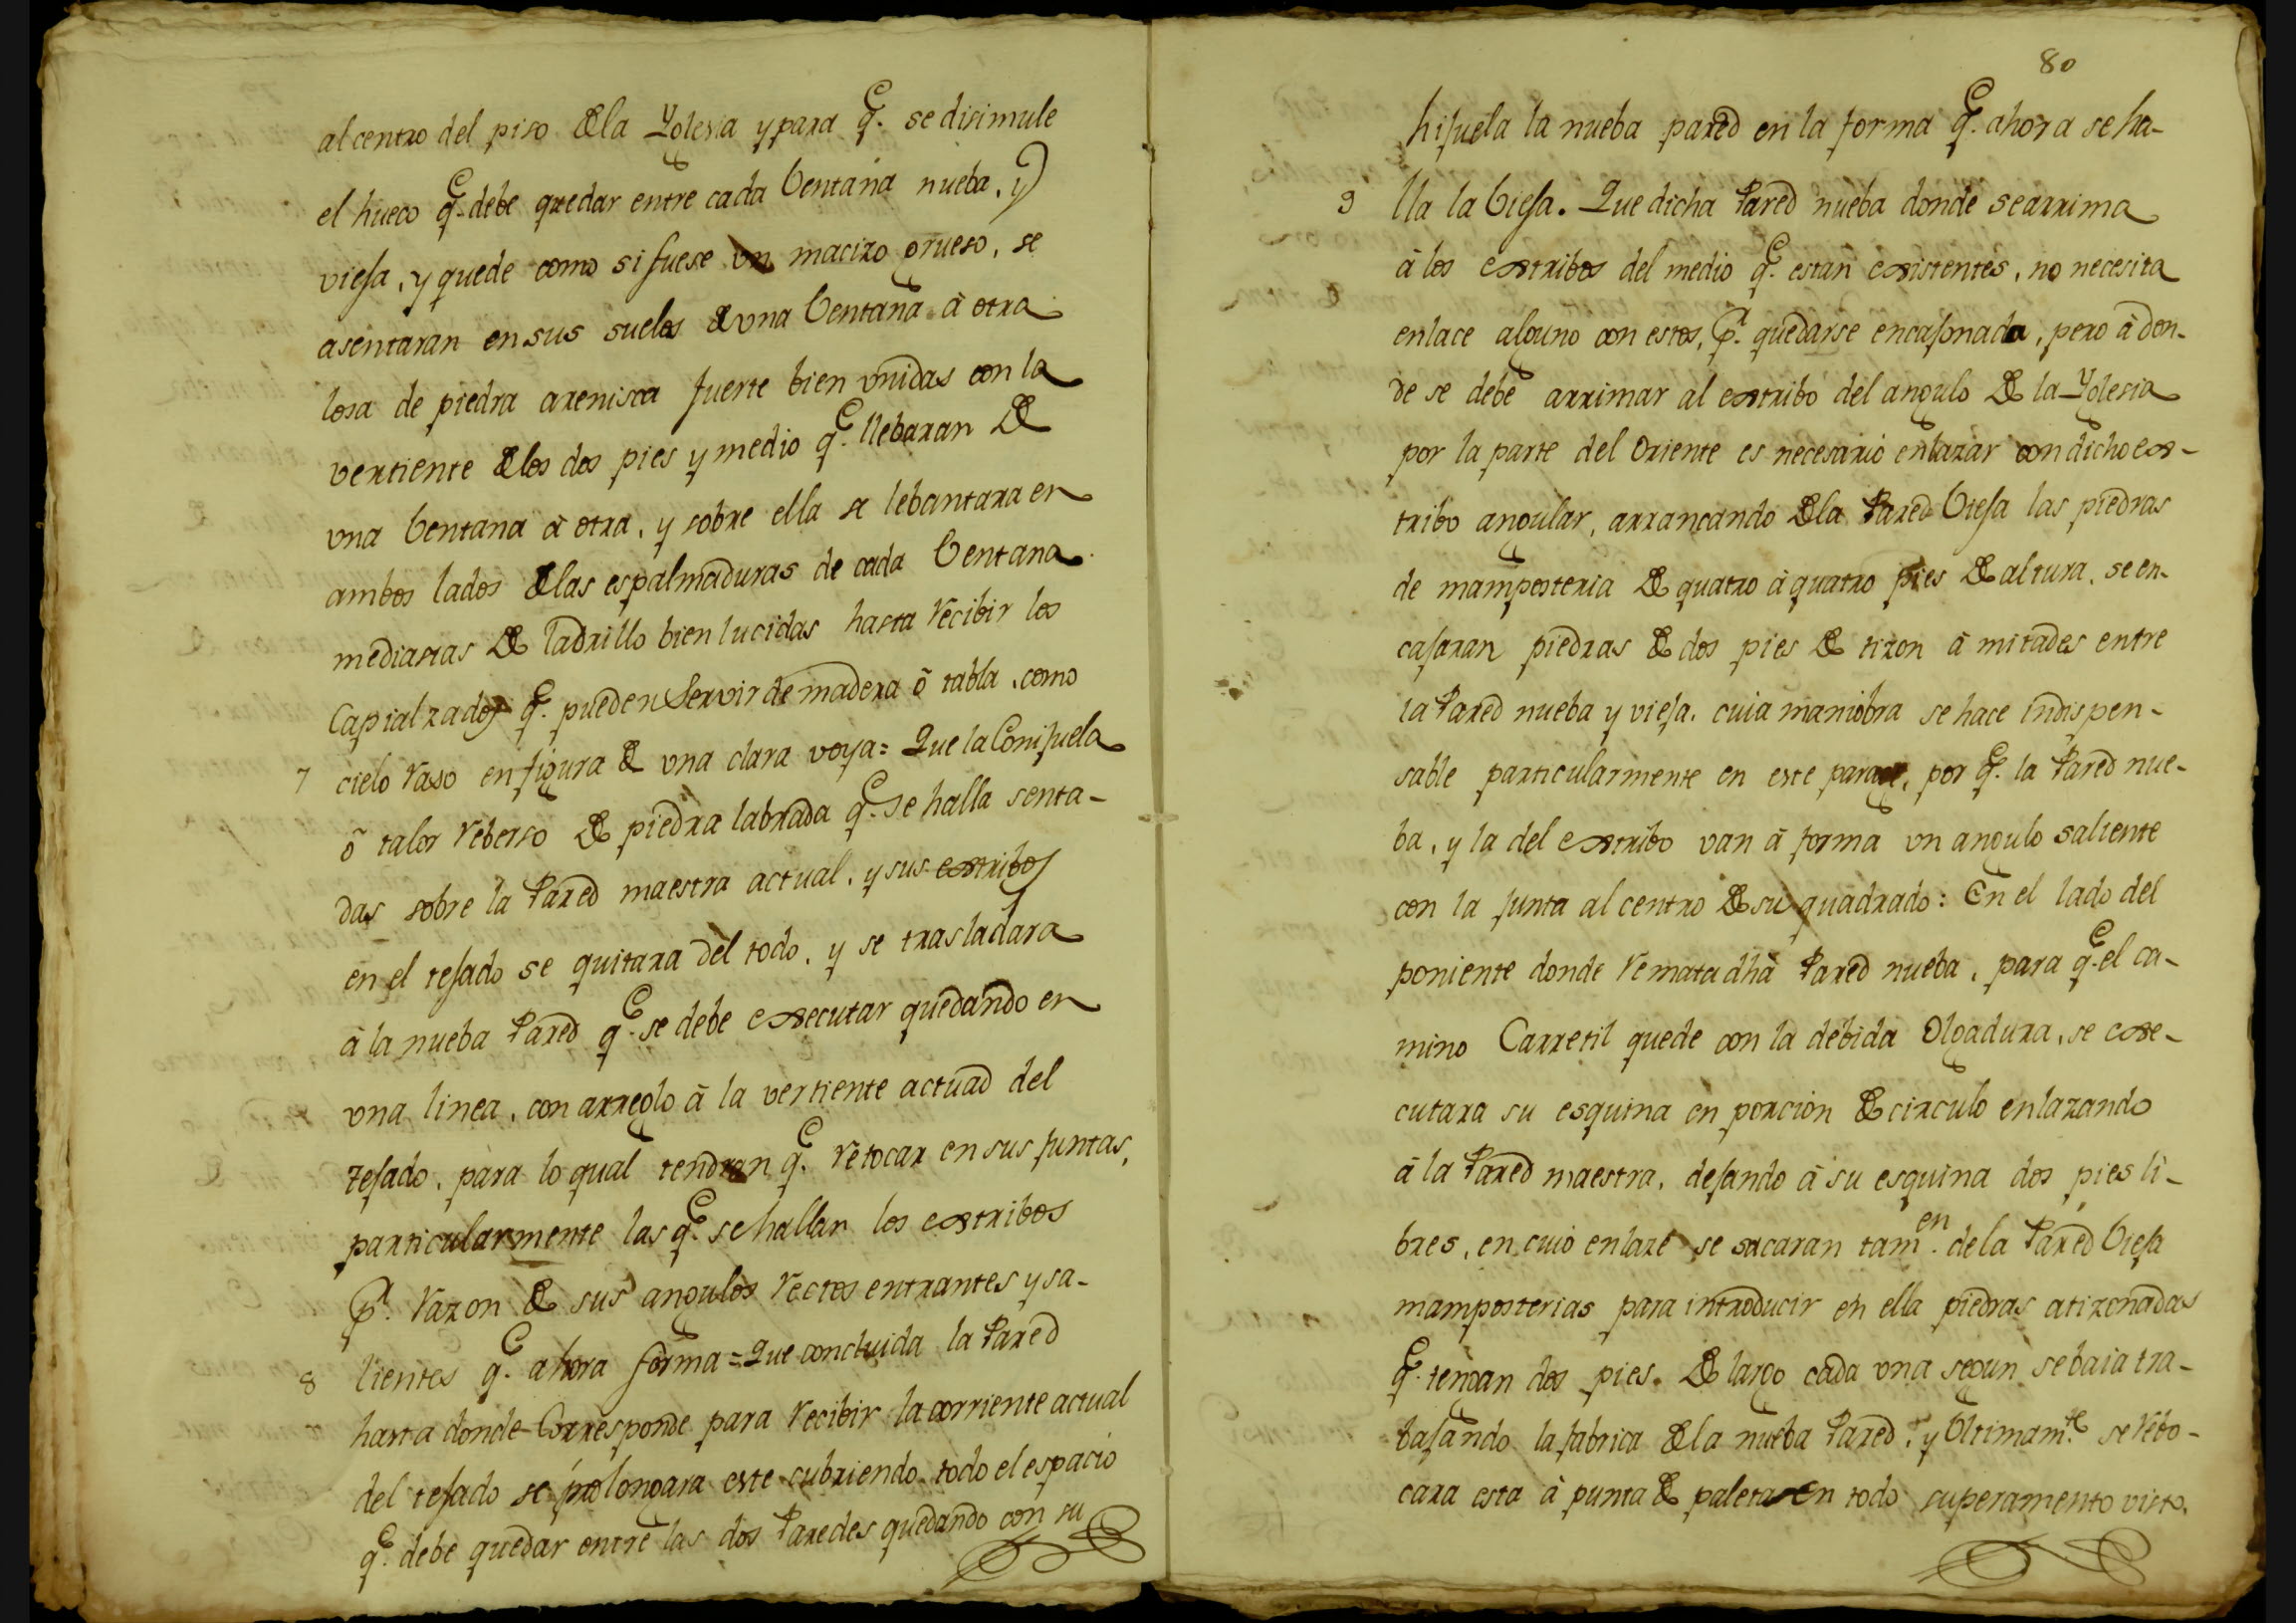 al centro del piso de la Yglesia y para q.e se disimule
el hueco q.e debe quedar entre cada Ventana nueba, y
viesa, y quede como si fuese un macizo grueso, se
asentaran en sus suelos de una Ventana à otra
losa de piedra arenisca fuerte bien unidas con la
vertiente de los dos pies y medio q.e llebaran de
una Ventana à otra, y sobre ella se lebantara en
ambos lados de las espalmaduras de cada Ventana
mediasras de ladrillo bien lucidas hasta recibir los
Capialzados q.e pueden Servir de madera ô tabla, como
7 cielo raso en figura de una clara voya = Que la Conijuela
ô talor reberso de piedra labrada q.e se halla senta-
das sobre la Pared maestra actual, y sus extribos
en el tejado se quitara del todo, y se trasladara
à la nueba Pared q.e se debe executar quedando en
una linea, con arreglo à la vertiente actuad del
Tejado, para lo qual tendran q.e retocar en sus juntas,
particularmente las q.e se hallan los extribos
p.r razon de sus angulos rectos entrantes y sa-
8 lientes q.e ahora forma = Que concluida la Pared
hasta donde Corresponde para recibir la corriente actual
del tejado se prolongara este cubriendo todo el espacio
q.e debe quedar entre las dos Paredes quedando con su
80
hijuela la nueba pared en la forma q.e ahora se ha-
9 lla la Viesa. Que dicha Pared nueba donde se arrima
à los extribos del medio q.e estan existentes, no necesita
enlace alguno con estos, p.r quedarse encajonada, pero à don-
de se debe arrimar al extribo del angulo de la Yglesia
por la parte del Oriente es necesario enlazar con dicho ex-
tribo angular, arrancando de la Pared Viesa las piedras
de mamposteria de quatro à quatro pies de altura, se en-
casaran piedras de dos pies de tizon à mitades entre
la Pared nueba y viesa, cuia maniobra se hace indispen-
sable particularmente en este parage, por q.e la Pared nue-
ba, y la del extribo van à forma un angulo saliente
con la junta al centro de su quadrado: En el lado del
poniente donde remata dhâ Pared nueba, para q.e el ca-
mino Carretil quede con la debida Olgadura, se exe-
cutara su esquina en porcion de circulo enlazando
à la Pared maestra, dejando à su esquina dos pies li-
bres, en cuio enlaze se sacaran tam.en de la Pared Viesa
mamposterias para introducir en ella piedras atizonadas
q.e tengan dos pies. de largo cada una segun se baia tra-
basando la fabrica de la nueba Pared, y Ultimam.te se rebo-
cara esta à punta de paleta en todo superamento visto.